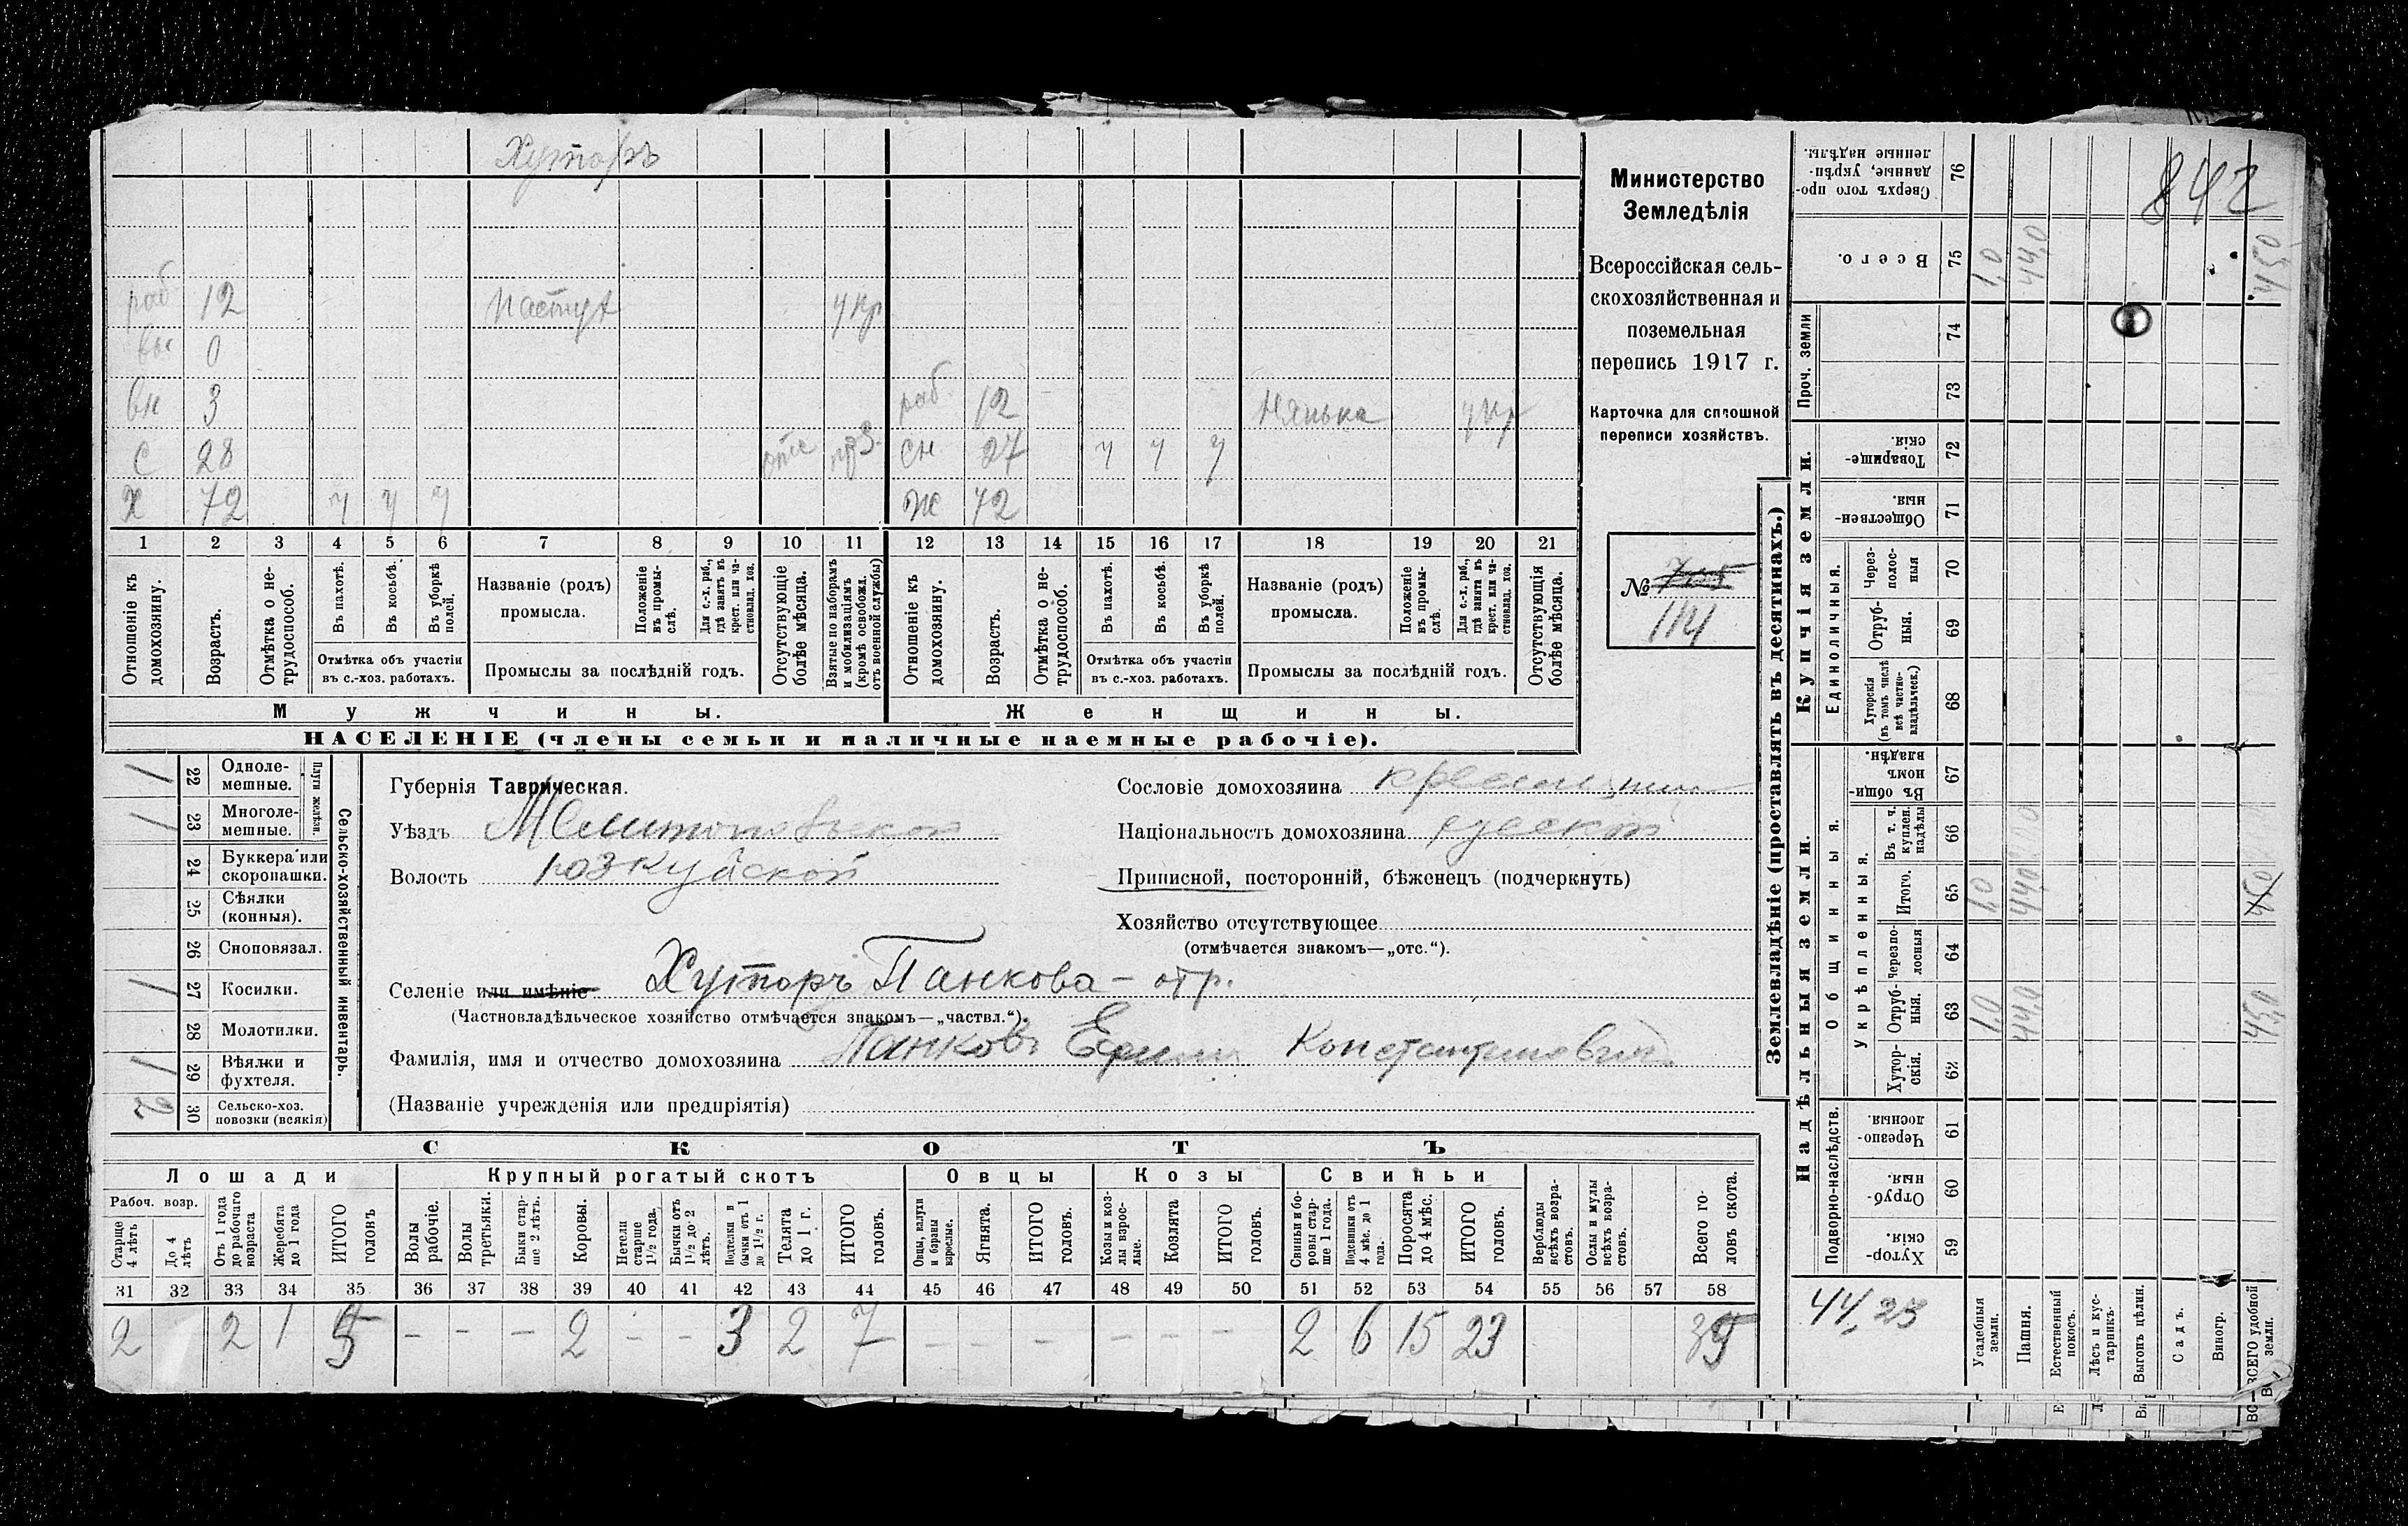 Хуторъ
раб 12 пастух укр
вн 0
вн 3 раб 12 нянька укр
с 28 отс сн 27 ч ч ч
х 72 ч ч ч ж 72
1 2 3 4 5 6 7 8 9 10 11 12 13 14 15 16 17 18 19 20 21
Отношеніе къ домохозяину.
Возрастъ.
Отмѣтка о не-трудоспособ.
Въ пахотѣ.
Въ косьбѣ.
Въ уборкѣ полей.
Отмѣтка объ участіи
въ с.-хоз. работахъ.
Названіе (родъ)
промысла.
Положеніе въ промы-слѣ.
Для с.-х. раб., гдѣ занятъ въ крест. или ча-стновлад. хоз.
Промыслы за послѣдній годъ.
Отсутствующіе болѣе мѣсяца.
Взятые по наборамъ и мобилизаціямъ (кромѣ освобожд. отъ военной службы)
Отношеніе къ домохозяину.
Возрастъ.
Отмѣтка о не-трудоспособ.
Въ пахотѣ.
Въ косьбѣ.
Въ уборкѣ полей.
Отмѣтка объ участіи
въ с.-хоз. работахъ.
Названіе (родъ)
промысла.
Положеніе въ промы-слѣ.
Для с.-х. раб., гдѣ занята въ крест. или ча-стновлад. хоз.
Промыслы за послѣдній годъ.
Отсутствующія болѣе мѣсяца.
Мужчины.
Женщины.
НАСЕЛЕНІЕ (члены семьи и наличные наемные рабочіе).
Министерство
Земледѣлія
Всероссійская сель-
скохозяйственная и
поземельная
перепись 1917 г.
Карточка для сплошной
переписи хозяйствъ.
№
114
Сельско-хозяйственный инвентарь.
Плуги желѣзн.
1 22 Одноле-мешные.
1 23 Многоле-мешные.
24 Буккера или скоропашки.
25 Сѣялки (конныя).
26 Сноповязал.
1 27 Косилки.
28 Молотилки.
1 29 Вѣялки и фухтеля.
2 30 Сельско-хоз. повозки (всякія)
Губернія Таврическая.
Уѣздъ Мелитопольской
Волость Юзкуйской
Сословіе домохозяина
Національность домохозяина русской
Приписной, посторонній, бѣженецъ (подчеркнуть)
Хозяйство отсутствующее
(отмѣчается знакомъ—„отс.“).
Селеніе или имѣніе Хуторъ Панкова - отр.
(Частновладѣльческое хозяйство отмѣчается знакомъ—„частвл.“).
Фамилія, имя и отчество домохозяина Панковъ Ефим Константинович
(Названіе учрежденія или предпріятія)
СКОТЪ
Лошади
Крупный рогатый скотъ
Овцы
Козы
Свиньи
Рабоч. возр.
Старше 4 лѣтъ
До 4 лѣтъ
Отъ 1 года до рабочаго возраста
Жеребята до 1 года
ИТОГО головъ
Волы рабочіе.
Волы третьяки.
Быки стар-ше 2 лѣтъ.
Коровы.
Нетели старше 1½ года.
Бычки отъ 1½ до 2 лѣтъ.
Подтелки и бычки отъ 1 до 1½ г.
Телята до 1 г.
ИТОГО головъ.
Овцы, валухи и бараны взрослые.
Ягнята.
ИТОГО головъ.
Козы и коз-лы взрос-лые.
Козлята
ИТОГО головъ.
Свиньи и бо-ровы стар-ше 1 года.
Подсвинки отъ 4 мѣс. до 1 года.
Поросята до 4 мѣс.
ИТОГО головъ.
Верблюды всѣхъ возра-стовъ.
Ослы и мулы всѣхъ возра-стовъ.
Всего го-ловъ скота.
31 32 33 34 35 36 37 38 39 40 41 42 43 44 45 46 47 48 49 50 51 52 53 54 55 56 57 58
2 2 1 5 - - - 2 - - 3 2 7 - - - - - - 2 6 15 23 35
Землевладѣніе (проставлять въ десятинахъ.)
Купчія земли.
Надѣльныя земли.
Сверхъ того про-данные, укрѣп-ленные надѣлы. 76
842
Всего. 75 1,0 44,0 45,0
Проч. земли
74
73
Товарище-скія. 72
Обществен-ныя. 71
Единоличныя.
Через-полос-ныя 70
Отруб-ныя. 69
Хуторскія (въ томъ числѣ всѣ частно-владѣльческ.) 68
Общинныя.
Въ общи-номъ владѣн. 67
Укрѣпленныя.
Въ т. ч. куплен. надѣлы 66
Итого. 65 1,0 44,0 45,0
Черезпо-лосныя 64
Отруб-ныя. 63 1,0 44,0 45,0
Хутор-скія. 62
Подворно-наслѣдств.
Черезпо-лосныя. 61
Отруб-ныя. 60
Хутор-скія. 59
44,25
Усадебныя земли.
Пашня.
Естественный покосъ.
Лѣсъ и кус-тарникъ.
Выгонъ цѣлин.
Садъ.
Виногр.
ВСЕГО удобной земли.